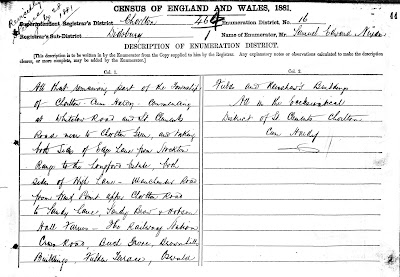 CENSUS OF ENGLAND AND WALES, 1881.
44
Superintendent Registrar's District Chorlton 464 Enumeration District, No. 16
Registrar's Sub-District Didsbury 1 Name of Enumerator, Mr. Samuel Edward Nixon
DESCRIPTION OF ENUMERATION DISTRICT.
(This description is to be written in by the Enumerator from the Copy supplied to him by the Registrar. Any explanatory notes or observations calculated to make the description
clearer, or more complete, may be added by the Enumerator.)
Col. 1.
All that remaining part of the Township
of Chorlton Cum Hardy. Commencing
at Whitelow Road and St Clements
Road near to Chorlton Green, and taking
both Sides of Edge Lane from Stockton
Range to the Longford Estate both
sides of High Lane - Manchester Road
from and Point after Chorlton Road
to Sandy Lane, Sandy Brow &
Hall Farms - The Railway Station
Cross Road, Beech Grove, Brownhills
Buildings Terrace, Oswald
Col. 2.
and Renshaw's Buildings
All in the Ecclesiastical
District of St Clements Chorlton
Cum Hardy